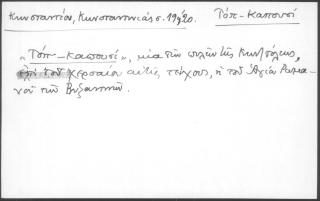 Κωνσταντίου, Κωνσταντινιάς σ. 19, 20. Τόπ-Καπουσί
„Τόπ-Καπουσί", μία τῶν πυλῶν τῆς Κωνπόλεως,
ἐπί τοῦ χερσαίου αὐτῆς τείχους, ἡ τοῦ Ἁγίου Ρωμα-
νοῦ τῶν Βυζαντινῶν.